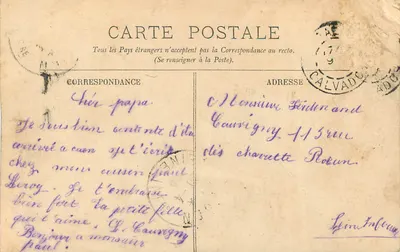 CARTE POSTALE
Tous les Pays étrangers n'acceptent pas la Correspondance au recto.
(Se renseigner à la Poste).
CORRESPONDANCE
Chér papa
Je suis bien contente d'être
arrivé a caen je t'écris
chez mon cousin paul
Leroy. Je t'embrasse
bien fort ta petite fille
qui t'aime. L. Cauvigny
Bonjour a monsieur
paul.
ADRESSE
Monsieur Ferdinand
Cauvigny 115 rue
des charette Rouen
CALVADOS